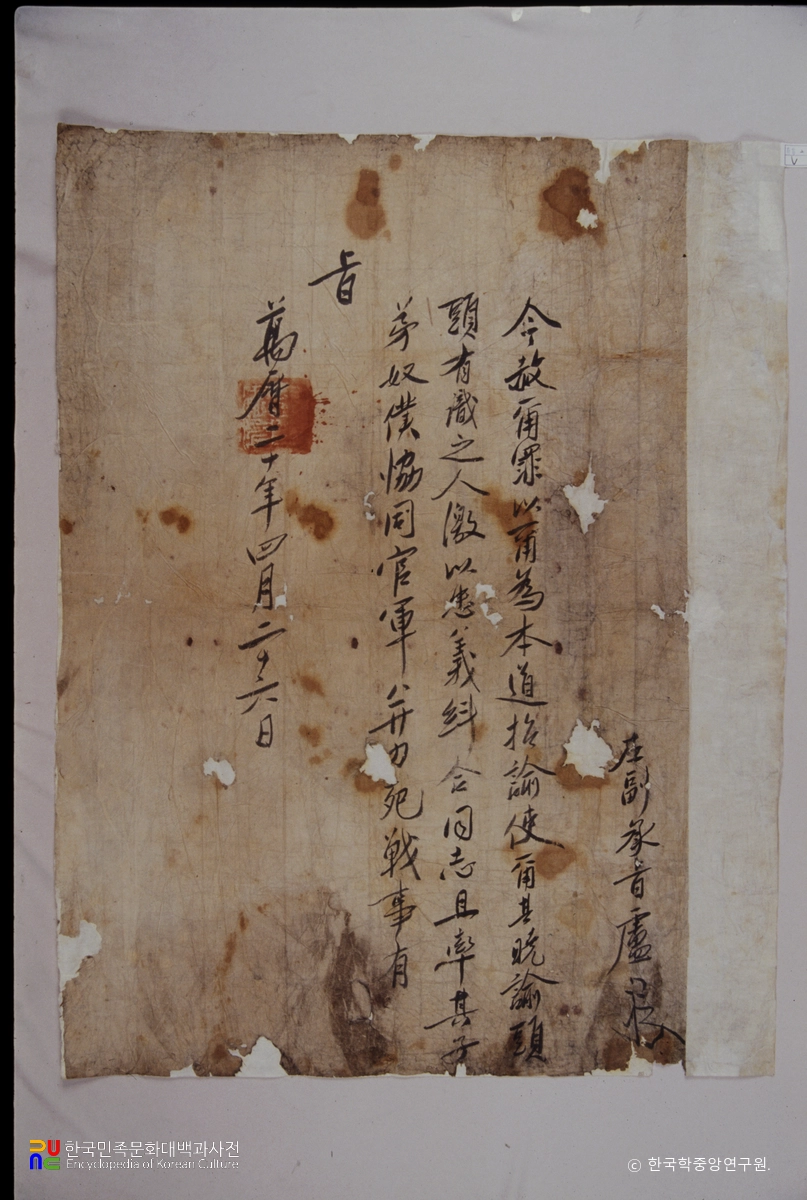 左副承旨盧
今赦爾罪以爾為本道招諭使爾其曉諭頭
頭有識之人激以忠義糾合同志且率其子
弟奴僕恊同官軍并力死戰事有
旨
萬曆二十年四月二十六日
한국민족문화대백과사전
Encyclopedia of Korean Culture
© 한국학중앙연구원.